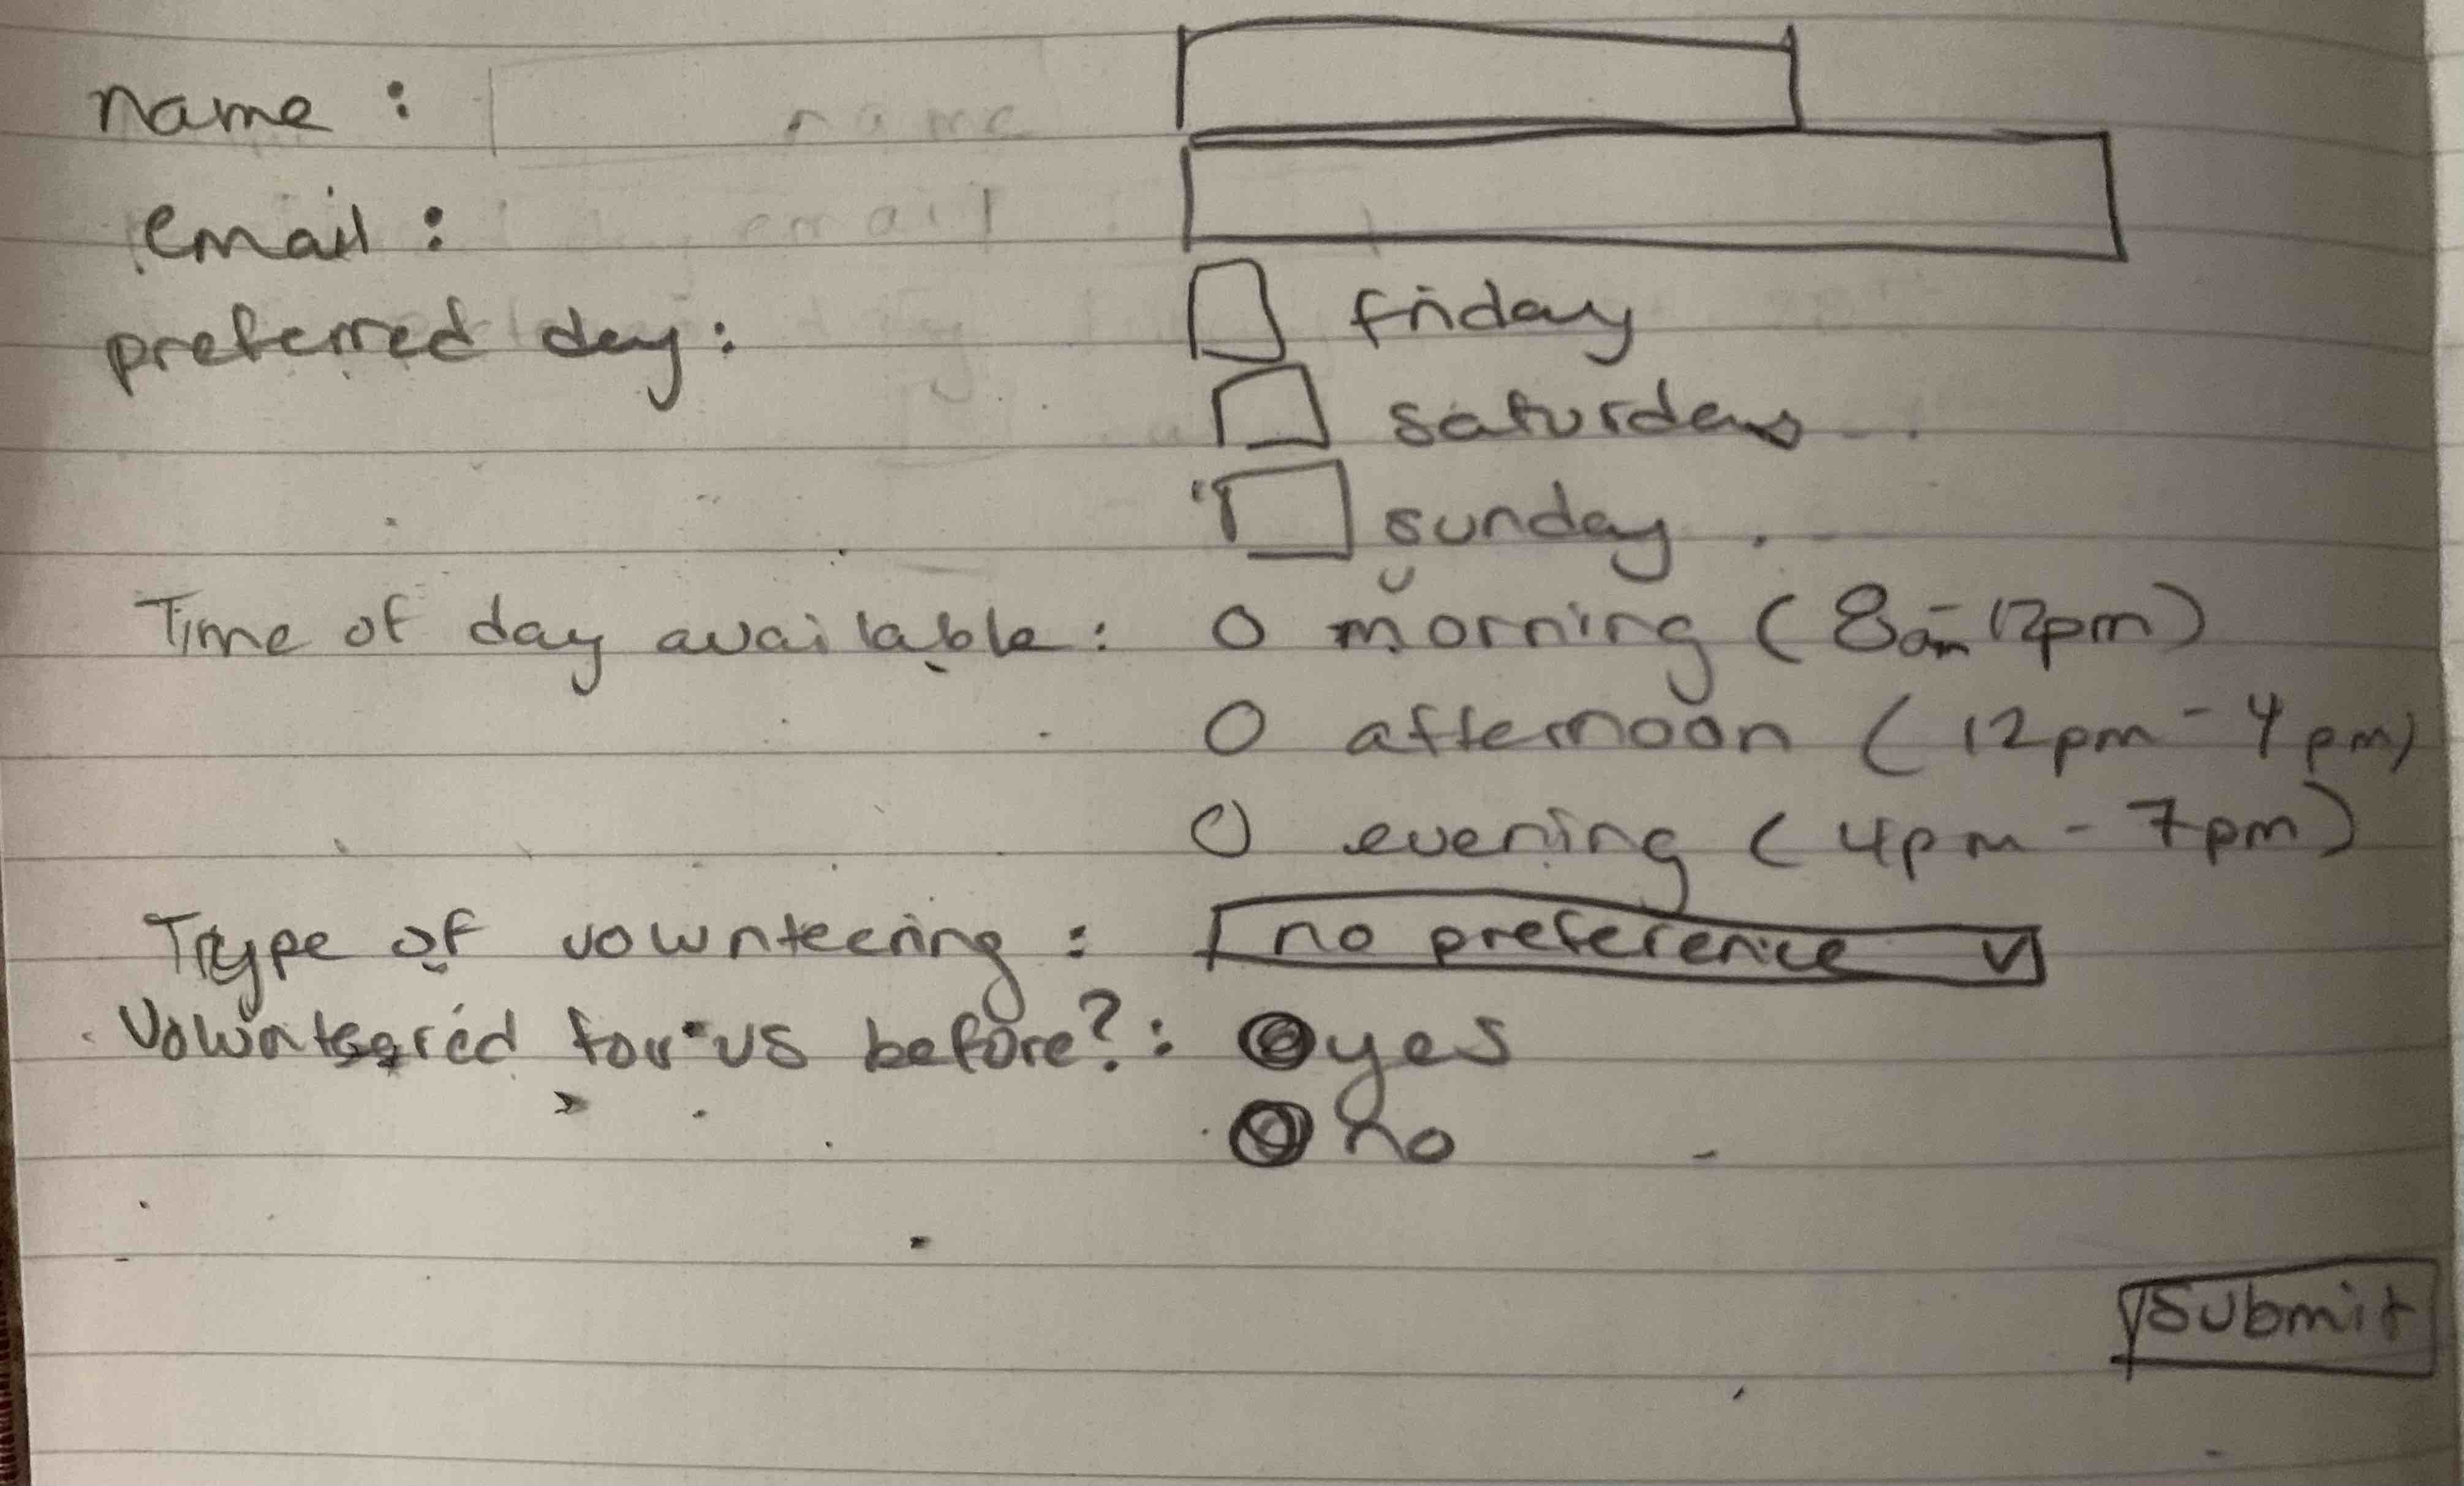 name :
email :
preferred day : friday
saturday
sunday
Time of day available : o morning ( 8am - 12pm )
o afternoon ( 12pm - 4pm )
o evening ( 4pm - 7pm )
Type of volunteering : no preference v
Volunteered for us before? : yes
no
submit